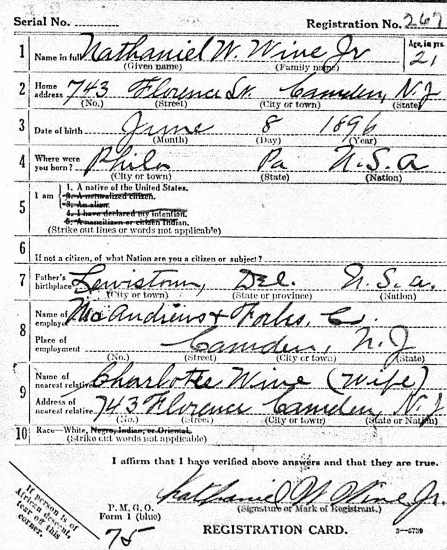 Serial No. Registration No. 267
1 Name in full Nathaniel W. Wine Jr Age, in yrs. 21
(Given name) (Family name)
2 Home address 743 Florence St. Camden, N.J
(No.) (Street) (City or town) (State)
3 Date of birth June 8 1896
(Month) (Day) (Year)
4 Where were you born? Phila Pa U.S.A
(City or town) (State) (Nation)
5 I am
1. A native of the United States.
2. A naturalized citizen.
3. An alien.
4. I have declared my intention.
5. A noncitizen or citizen Indian.
(Strike out lines or words not applicable)
6 If not a citizen, of what Nation are you a citizen or subject?
7 Father's birthplace Lewistown, Del. U.S.a.
(City or town) (State or province) (Nation)
8 Name of employer MacAndrews & Forbes, C.
Place of employment Camden, N.J
(No.) (Street) (City or town) (State)
9 Name of nearest relative Charlotte Wine (Wife)
Address of nearest relative 743 Florence Camden, N.J.
(No.) (Street) (City or town) (State or Nation)
10 Race—White, Negro, Indian, or Oriental.
(Strike out words not applicable)
I affirm that I have verified above answers and that they are true.
Nathaniel W Wine Jr.
(Signature or Mark of Registrant.)
If person is of African descent, tear off this corner.
P. M. G. O.
Form 1 (blue)
75
REGISTRATION CARD.